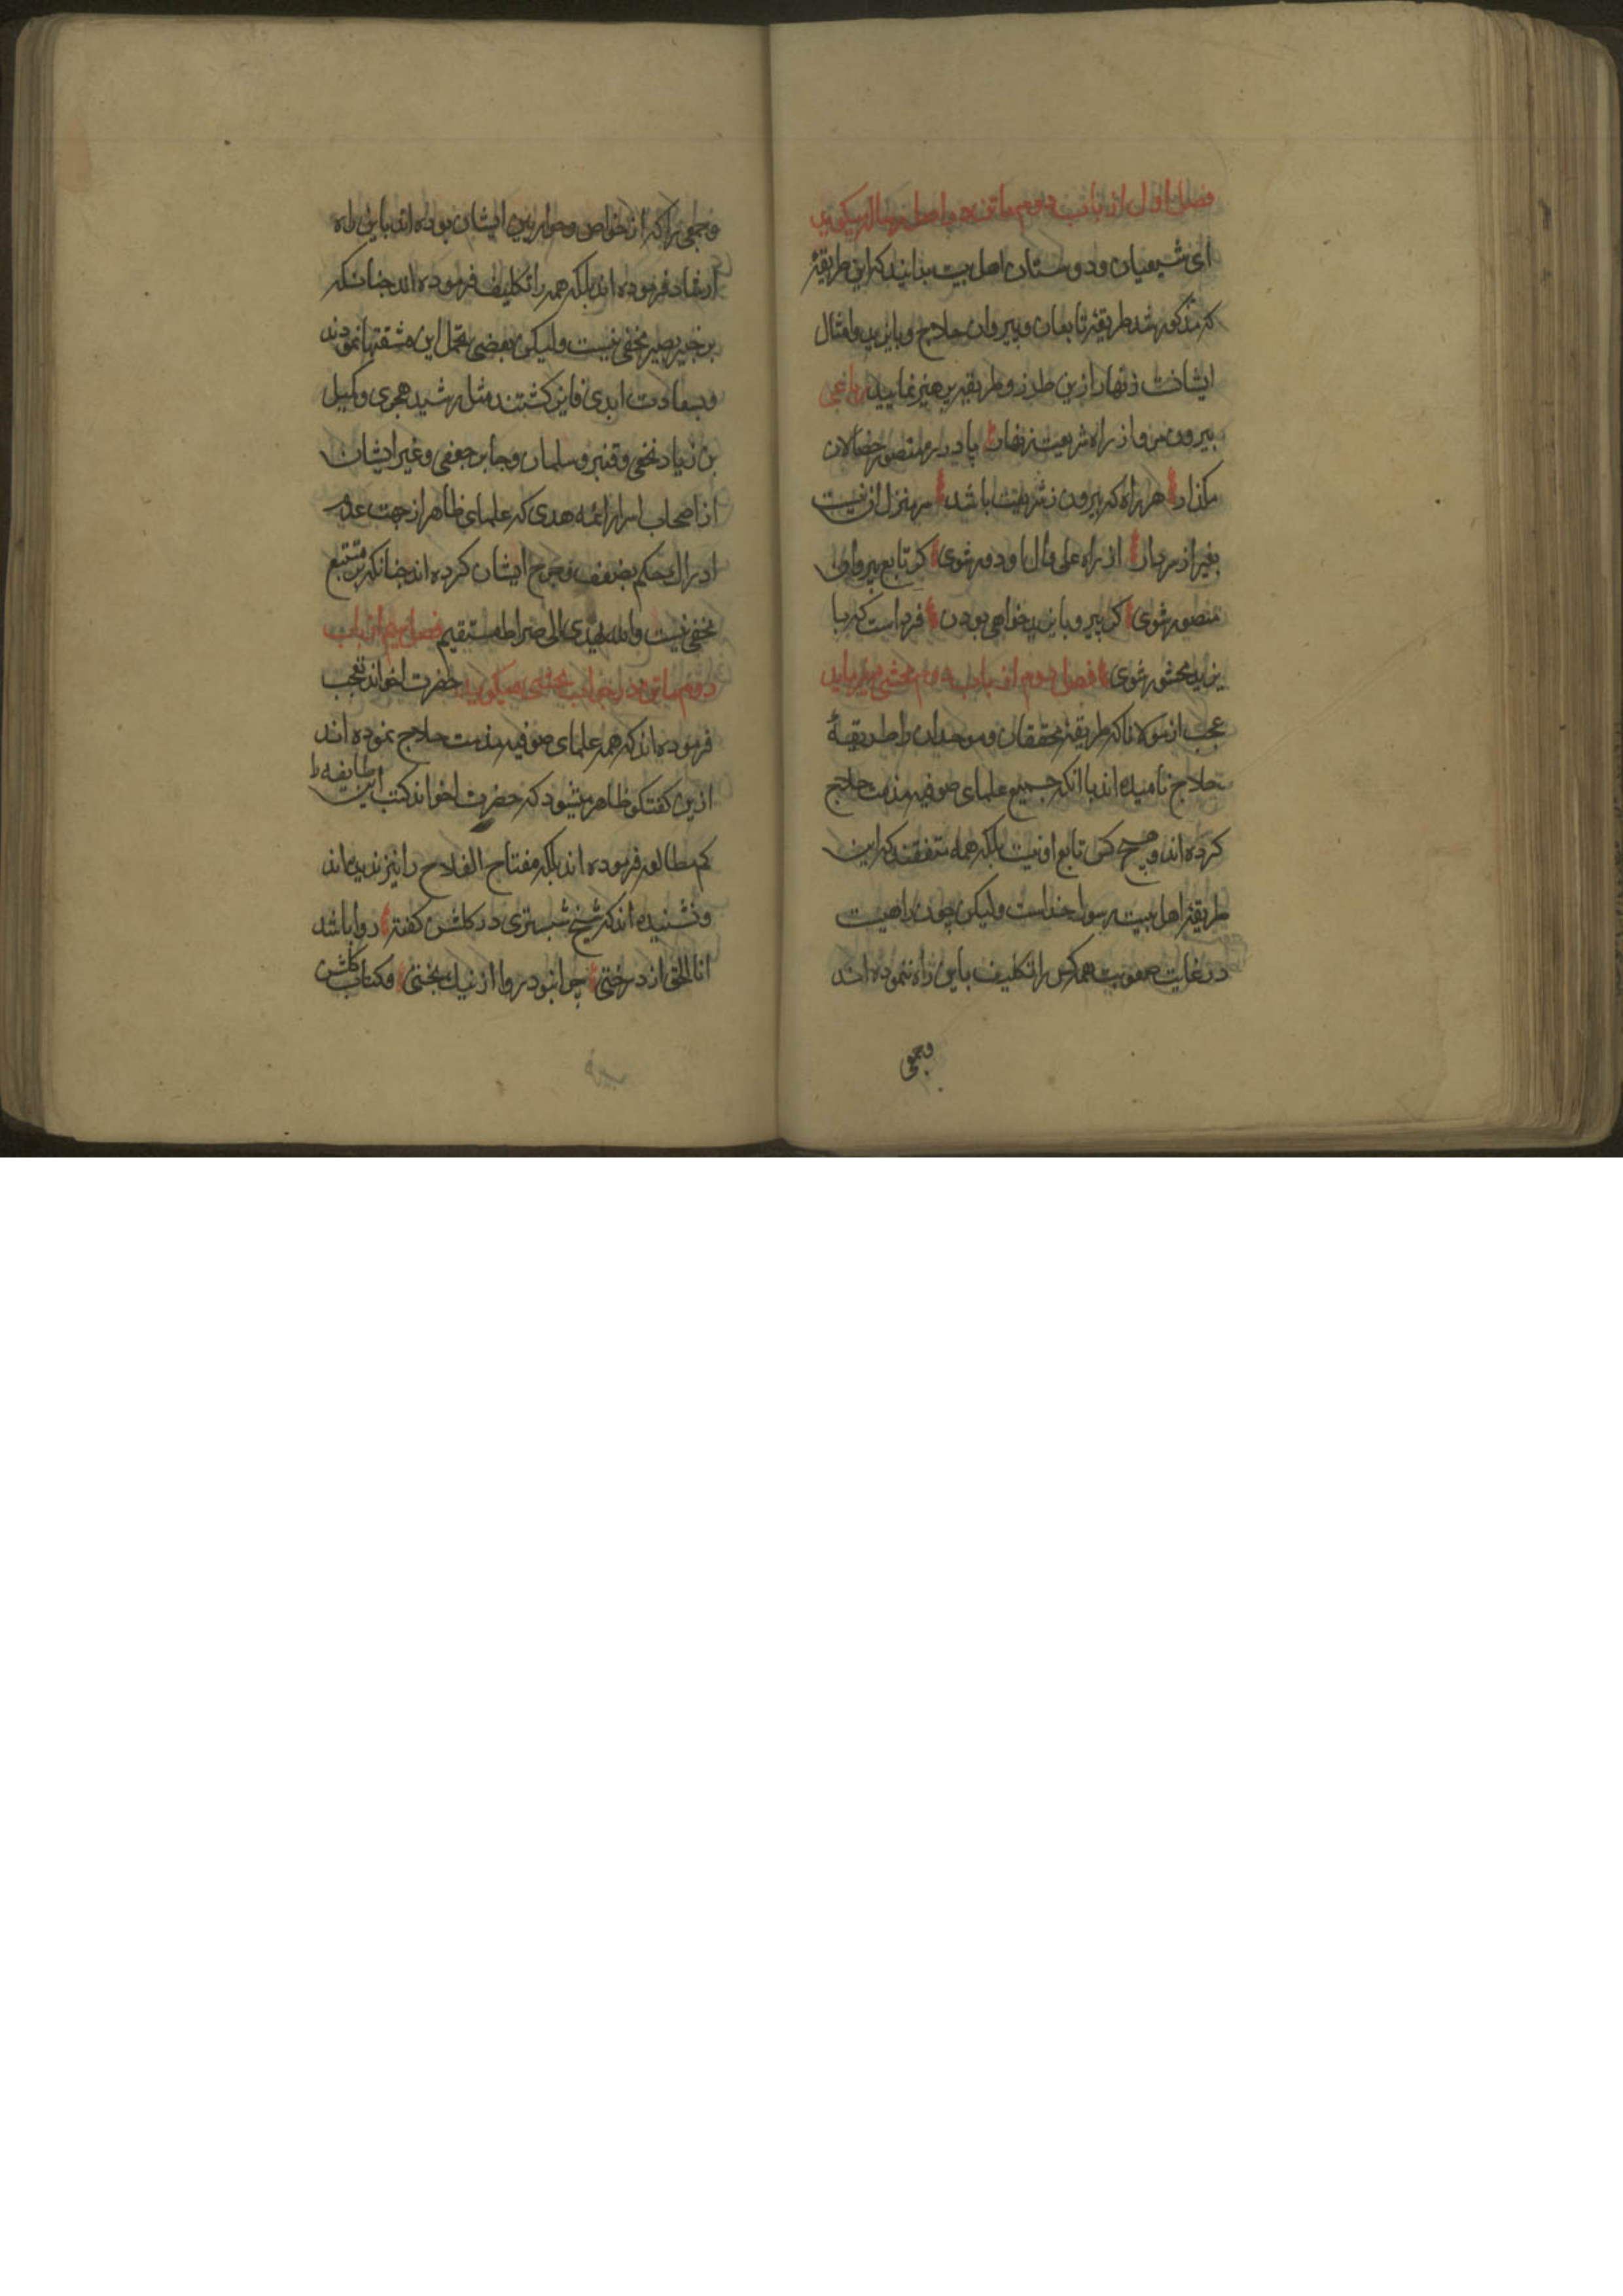 فصل اول از باب دوم ماتن در اصل رساله میگوید
ای شیعیان و دوستان اهل بیت بدانید که این طریقهٔ
که مذکور شد طریقهٔ تابعان و پیروان حلاج و بایزید و امثال
ایشانست زنهار ازین طرز و طریقه پرهیز نمایید رباعی
بیرون مرو از راه شریعت زنهار پا در ره منصور خصالان
مگذار هر راه که بیرون ز شریعت باشد سرمنزل آن نیست
بغیر از سر دار از راه علی و آل او دور شوی گر تابع پیروان
منصور شوی گر پیرو بایزید خواهی بودن فرداست که با
یزید محشور شوی فصل دوم از باب دوم محشی میفرماید
عجب از مولانا که طریقهٔ محققان و موحدان را طریقهٔ
حلاج نامیده اند با آنکه جمیع علمای صوفیه مذمت حلاج
کرده اند و هیچ کس تابع او نیست بلکه همه متفقند که این
طریقهٔ اهل بیت رسول خداست ولیکن چون راهیست
در غایت صعوبت همه کس را تکلیف باین راه ننموده اند
وجمعی
وجمعی را که از خواص و حواریین ایشان بوده اند باین راه
ارشاد فرموده اند بلکه همه را تکلیف فرموده اند چنانکه
بر خبیر بصیر مخفی نیست ولیکن بعضی تحمل این مشقتها نمودند
و بسعادت ابدی فایز گشتند مثل رشید هجری و کمیل
بن زیاد نخعی و قنبر و سلمان و جابر جعفی و غیر ایشان
از اصحاب اسرار ائمه هدی که علمای ظاهر از جهت عدم
ادراک حکم بضعف و جرح ایشان کرده اند چنانکه بر متتبع
مخفی نیست والله یهدی الی صراط مستقیم فصل سیم از باب
دوم ماتن در جواب محشی میگوید حضرت اخوند تعجب
فرموده اند که همه علمای صوفیه مذمت حلاج نموده اند
ازین گفتگو ظاهر میشود که حضرت اخوند کتب این طایفه را
کم مطالعه فرموده اند بلکه مفتاح الفلاح را نیز ندیده اند
و نشنیده اند که شیخ شبستری در گلشن گفته روا باشد
انا الحق از درختی چرا نبود روا از نیک بختی و کتاب گلشن